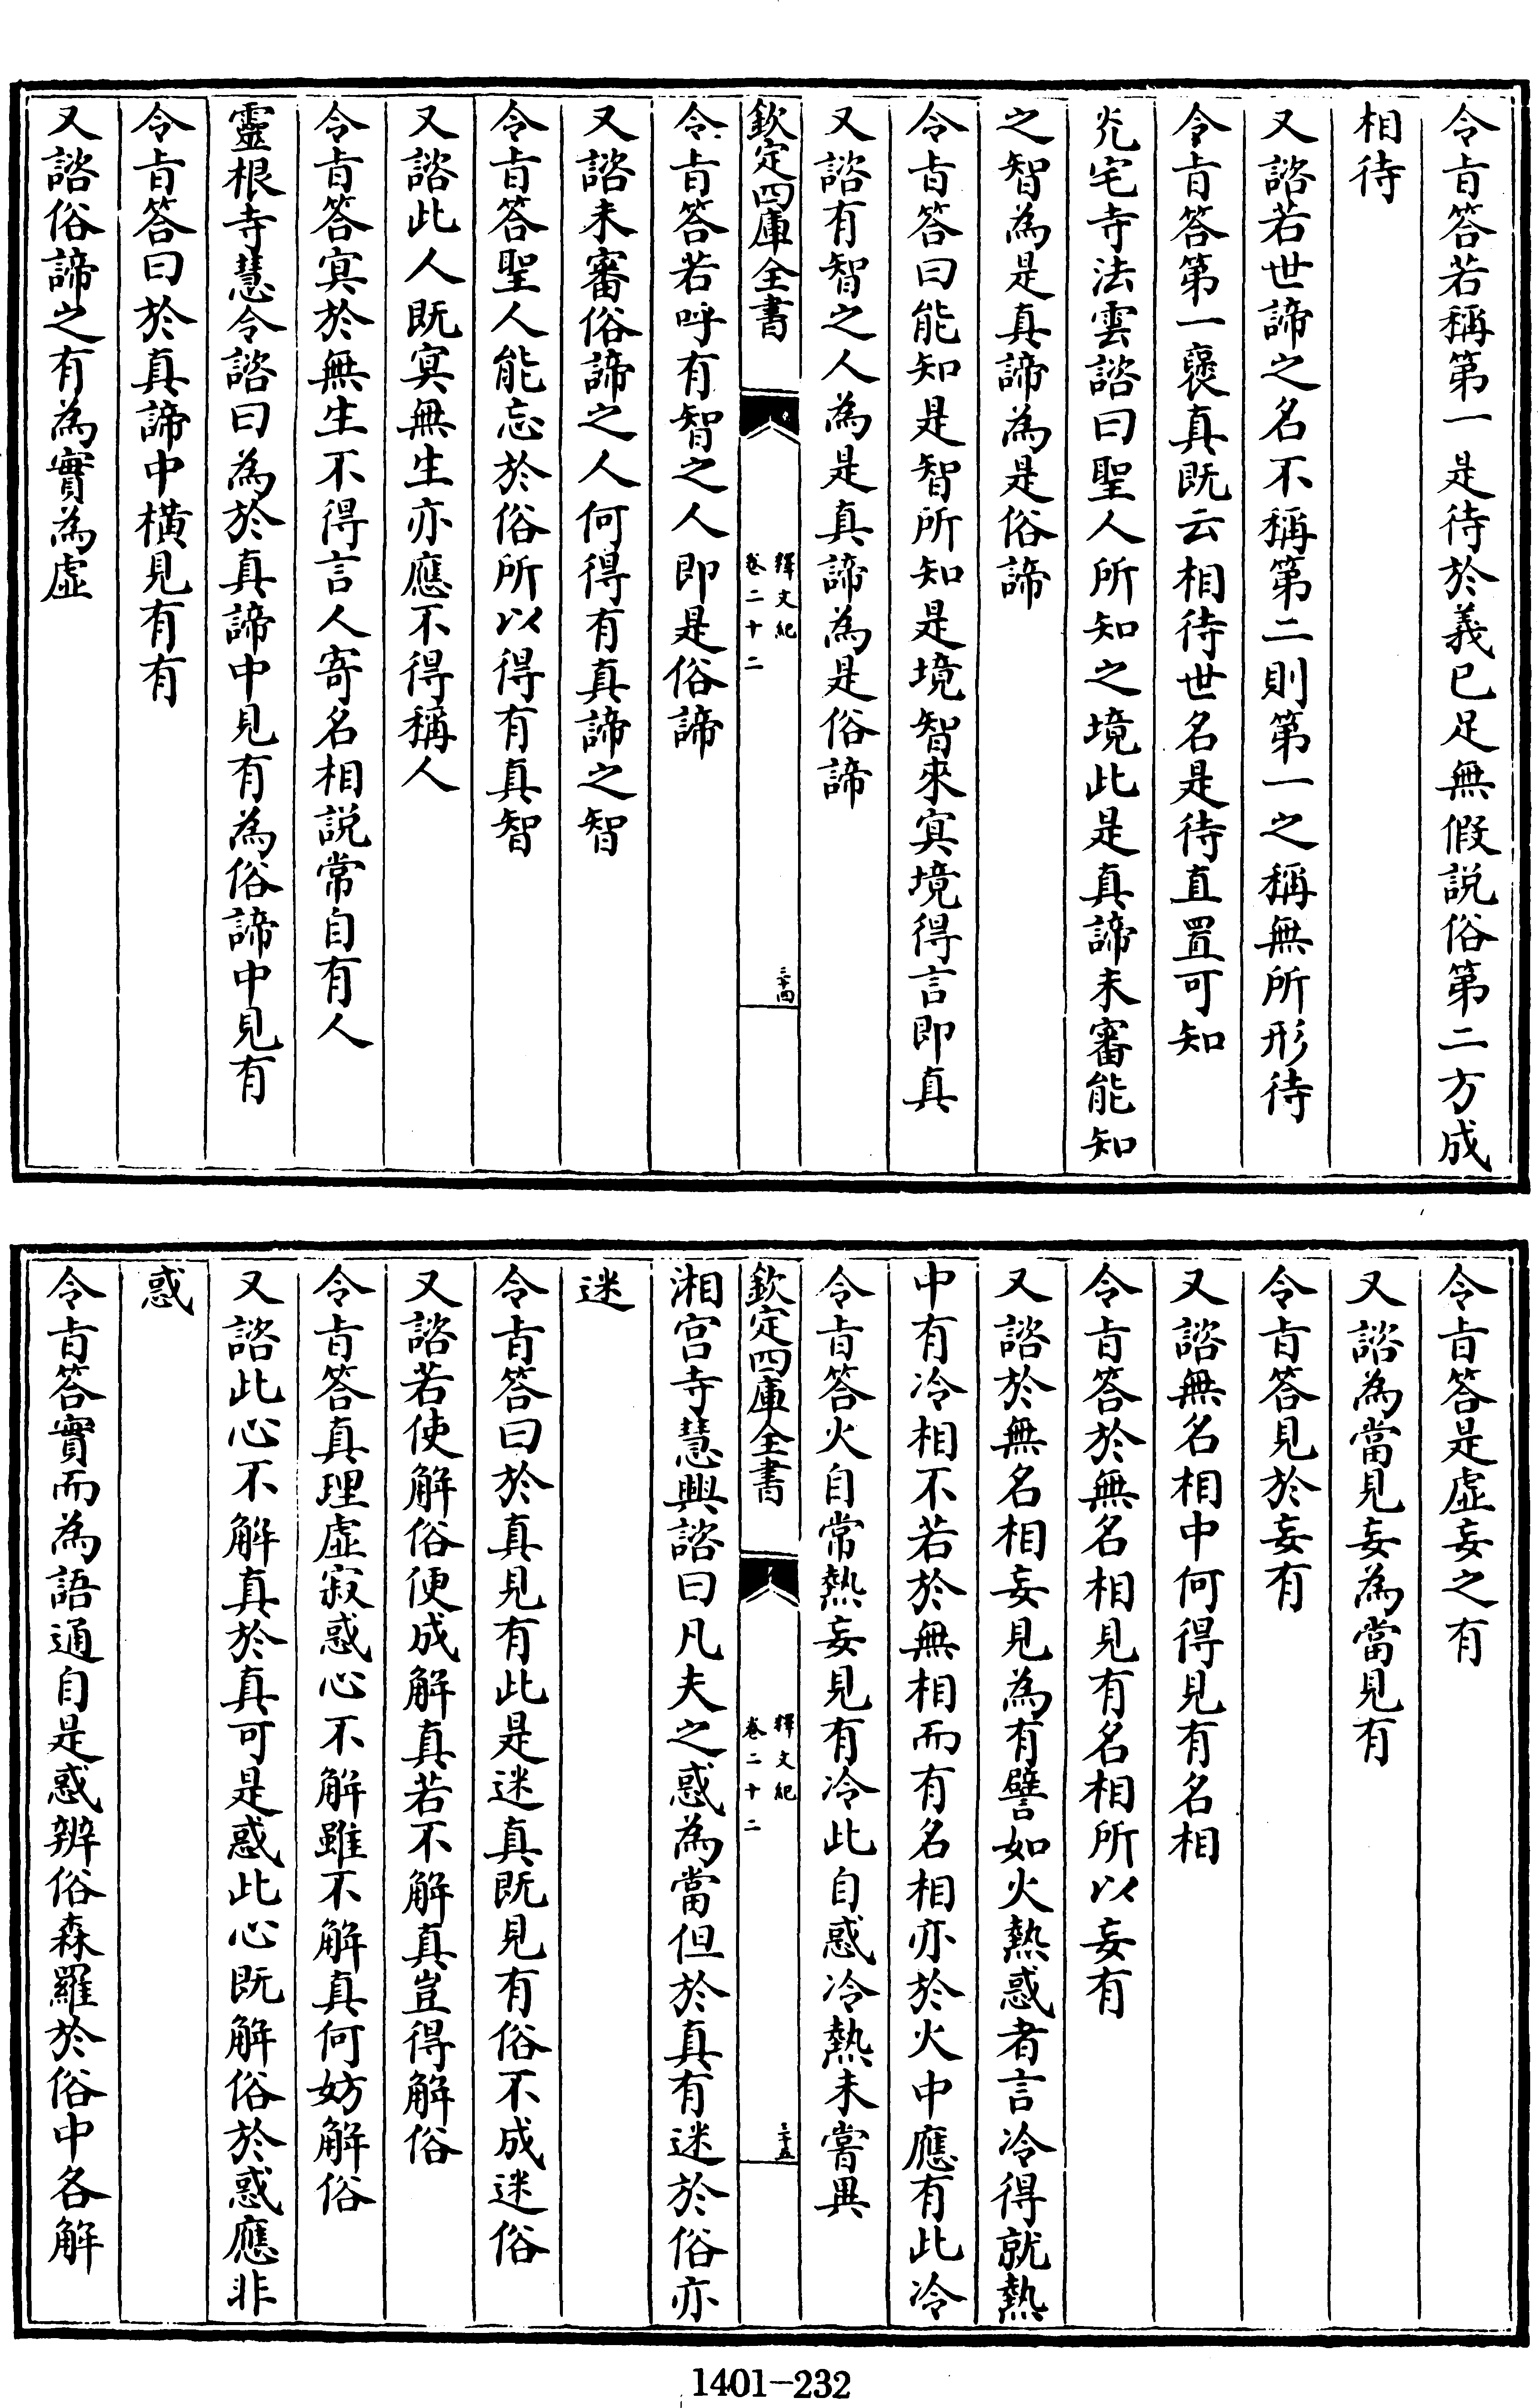 令旨答若稱第一是待於義已足無假説俗第二方成
相待
又諮若世諦之名不稱第二則第一之稱無所形待
令旨答第一褒真既云相待世名是待直置可知
光宅寺法雲諮曰聖人所知之境此是真諦未審能知
之智為是真諦為是俗諦
令旨答曰能知是智所知是境智來冥境得言即真
又諮有智之人為是真諦為是俗諦
欽定四庫全書
釋文紀
卷二十二
三十四
令旨答若呼有智之人即是俗諦
又諮未審俗諦之人何得有真諦之智
令旨答聖人能忘於俗所以得有真智
又諮此人既冥無生亦應不得稱人
令旨答冥於無生不得言人寄名相説常自有人
靈根寺慧令諮曰為於真諦中見有為俗諦中見有
令旨答曰於真諦中橫見有有
又諮俗諦之有為實為虛
令旨答是虛妄之有
又諮為當見妄為當見有
令旨答見於妄有
又諮無名相中何得見有名相
令旨答於無名相見有名相所以妄有
又諮於無名相妄見為有譬如火熱惑者言冷得就熱
中有冷相不若於無相而有名相亦於火中應有此冷
令旨答火自常熱妄見有冷此自惑冷熱未嘗異
欽定四庫全書
釋文紀
卷二十二
三十五
湘宮寺慧興諮曰凡夫之惑為當但於真有迷於俗亦
迷
令旨答曰於真見有此是迷真既見有俗不成迷俗
又諮若使解俗便成解真若不解真豈得解俗
令旨答真理虛寂惑心不解雖不解真何妨解俗
又諮此心不解真於真可是惑此心既解俗於惑應非
惑
令旨答實而為語通自是惑辨俗森羅於俗中各解
1401-232